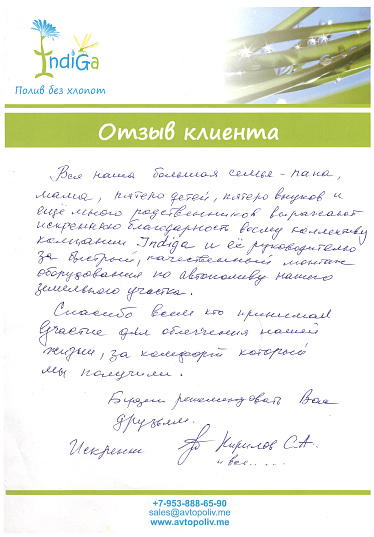 IndiGa
Полив без хлопот
Отзыв клиента
Вся наша большая семья - папа,
мама, пятеро детей, пятеро внуков и
ещё много родственников выражают
искреннюю благодарность всему коллективу
компании Indiga и её руководителю
за быстрый, качественный монтаж
оборудования по автополиву нашего
земельного участка.
Спасибо всем кто принимал
участие для облегчения нашей
жизни, за комфорт который
мы получили.
Будем рекомендовать Вас
друзьям.
Искренне Кирилов С.А.
и все.....
+7-953-888-65-90
sales@avtopoliv.me
www.avtopoliv.me